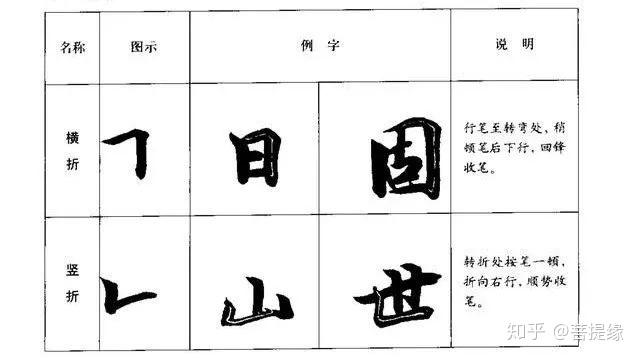 名称 图示 例字 说明
横折 日 固 行笔至转弯处，稍
顿笔后下行，回锋
收笔。
竖折 山 世 转折处按笔一顿，
折向右行，顺势收
笔。
知乎 @菩提缘